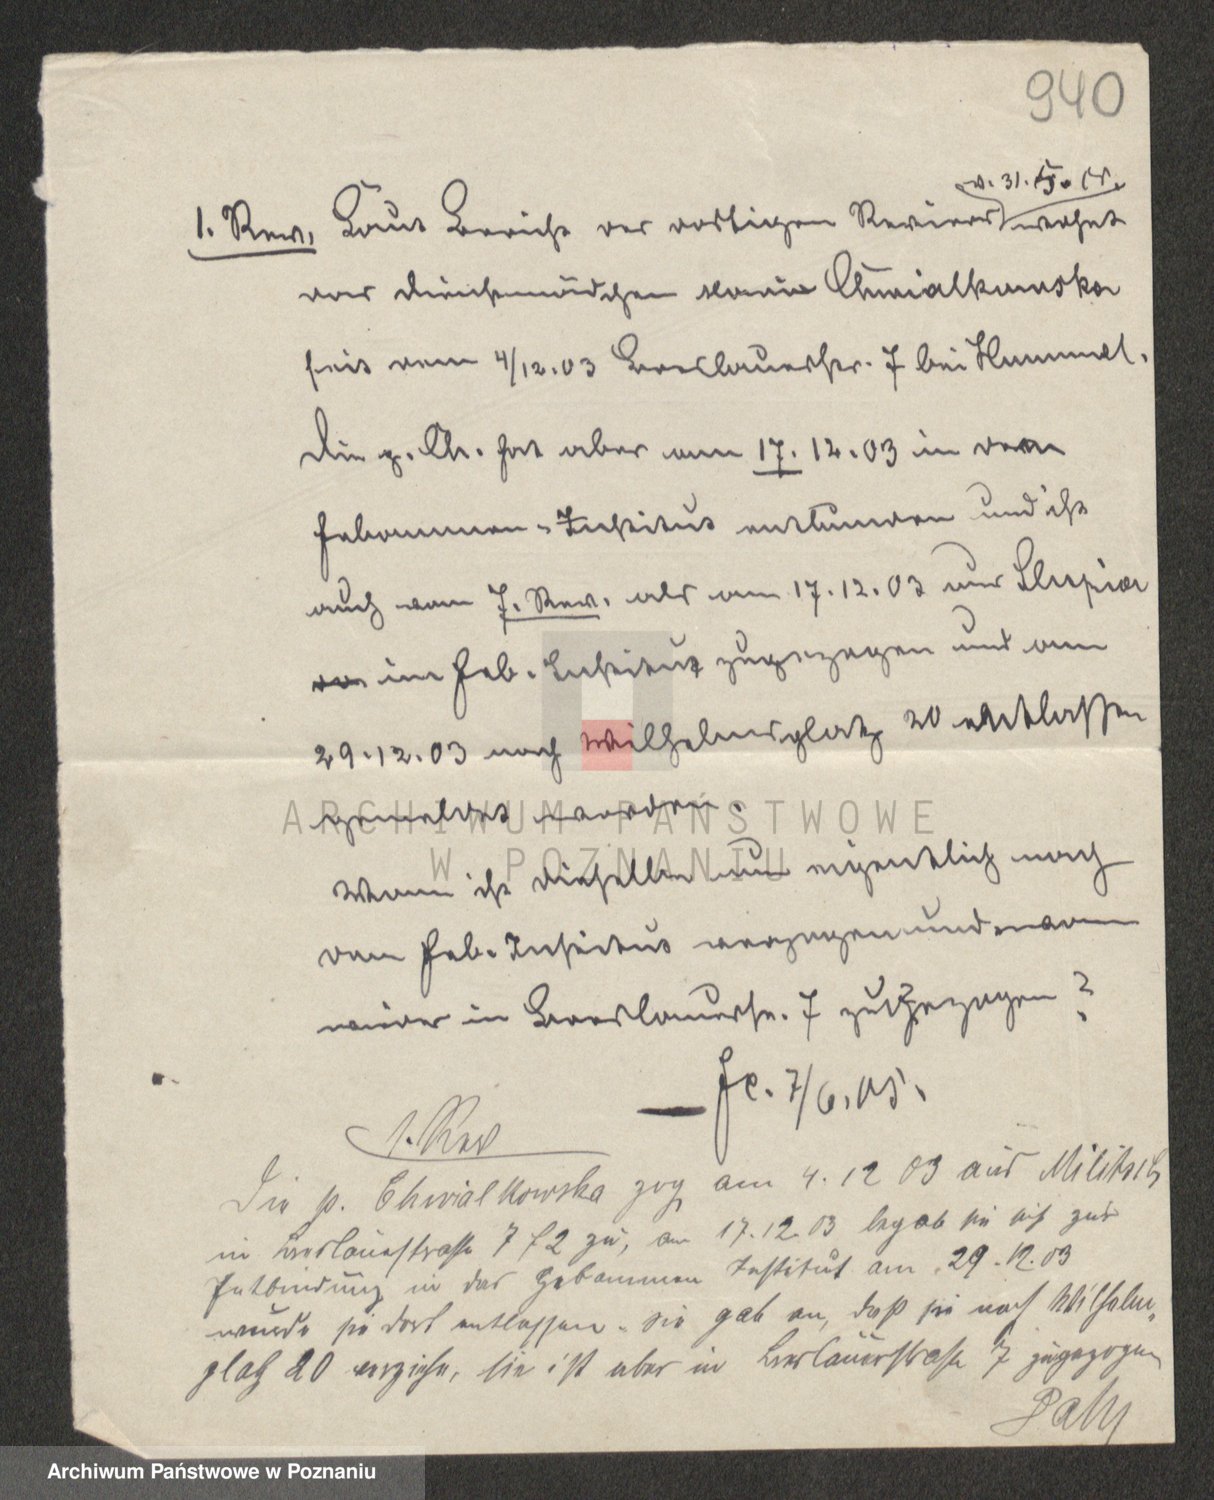 940
v. 31. 5. 05.
1. Rev. Laut Bericht des dortigen Reviers wohnt
das Dienstmädchen Maria Chwialkowska
seit dem 4/12.03 Breslauerstr. 7 bei Hummel.
Die p. Ch. hat aber am 17. 12. 03 in dem
Hebammen-Institut entbunden und ist
auch vom 7. Rev. als am 17.12.03 aus Slupia
im Heb. Institut zugezogen und am
29.12.03 nach Wilhelmsplatz 20 entlassen
gemeldet worden.
Wann ist dieselbe nun eigentlich nach
dem Heb. Institut verzogen und wann
wieder in Breslauerstr. 7 zugezogen?
7/6.05.
1. Rev
Die p. Chwialkowska zog am 4. 12 03 aus Militsch
in Breslauerstrasse 7 zu, am 17.12.03 begab sie sich zur
Entbindung in das Hebammen Institut am 29.12.03
wurde sie dort entlassen. Sie gab an, daß sie nach Wilhelm-
platz 20 verziehe, sie ist aber in Breslauerstrasse 7 zugezogen